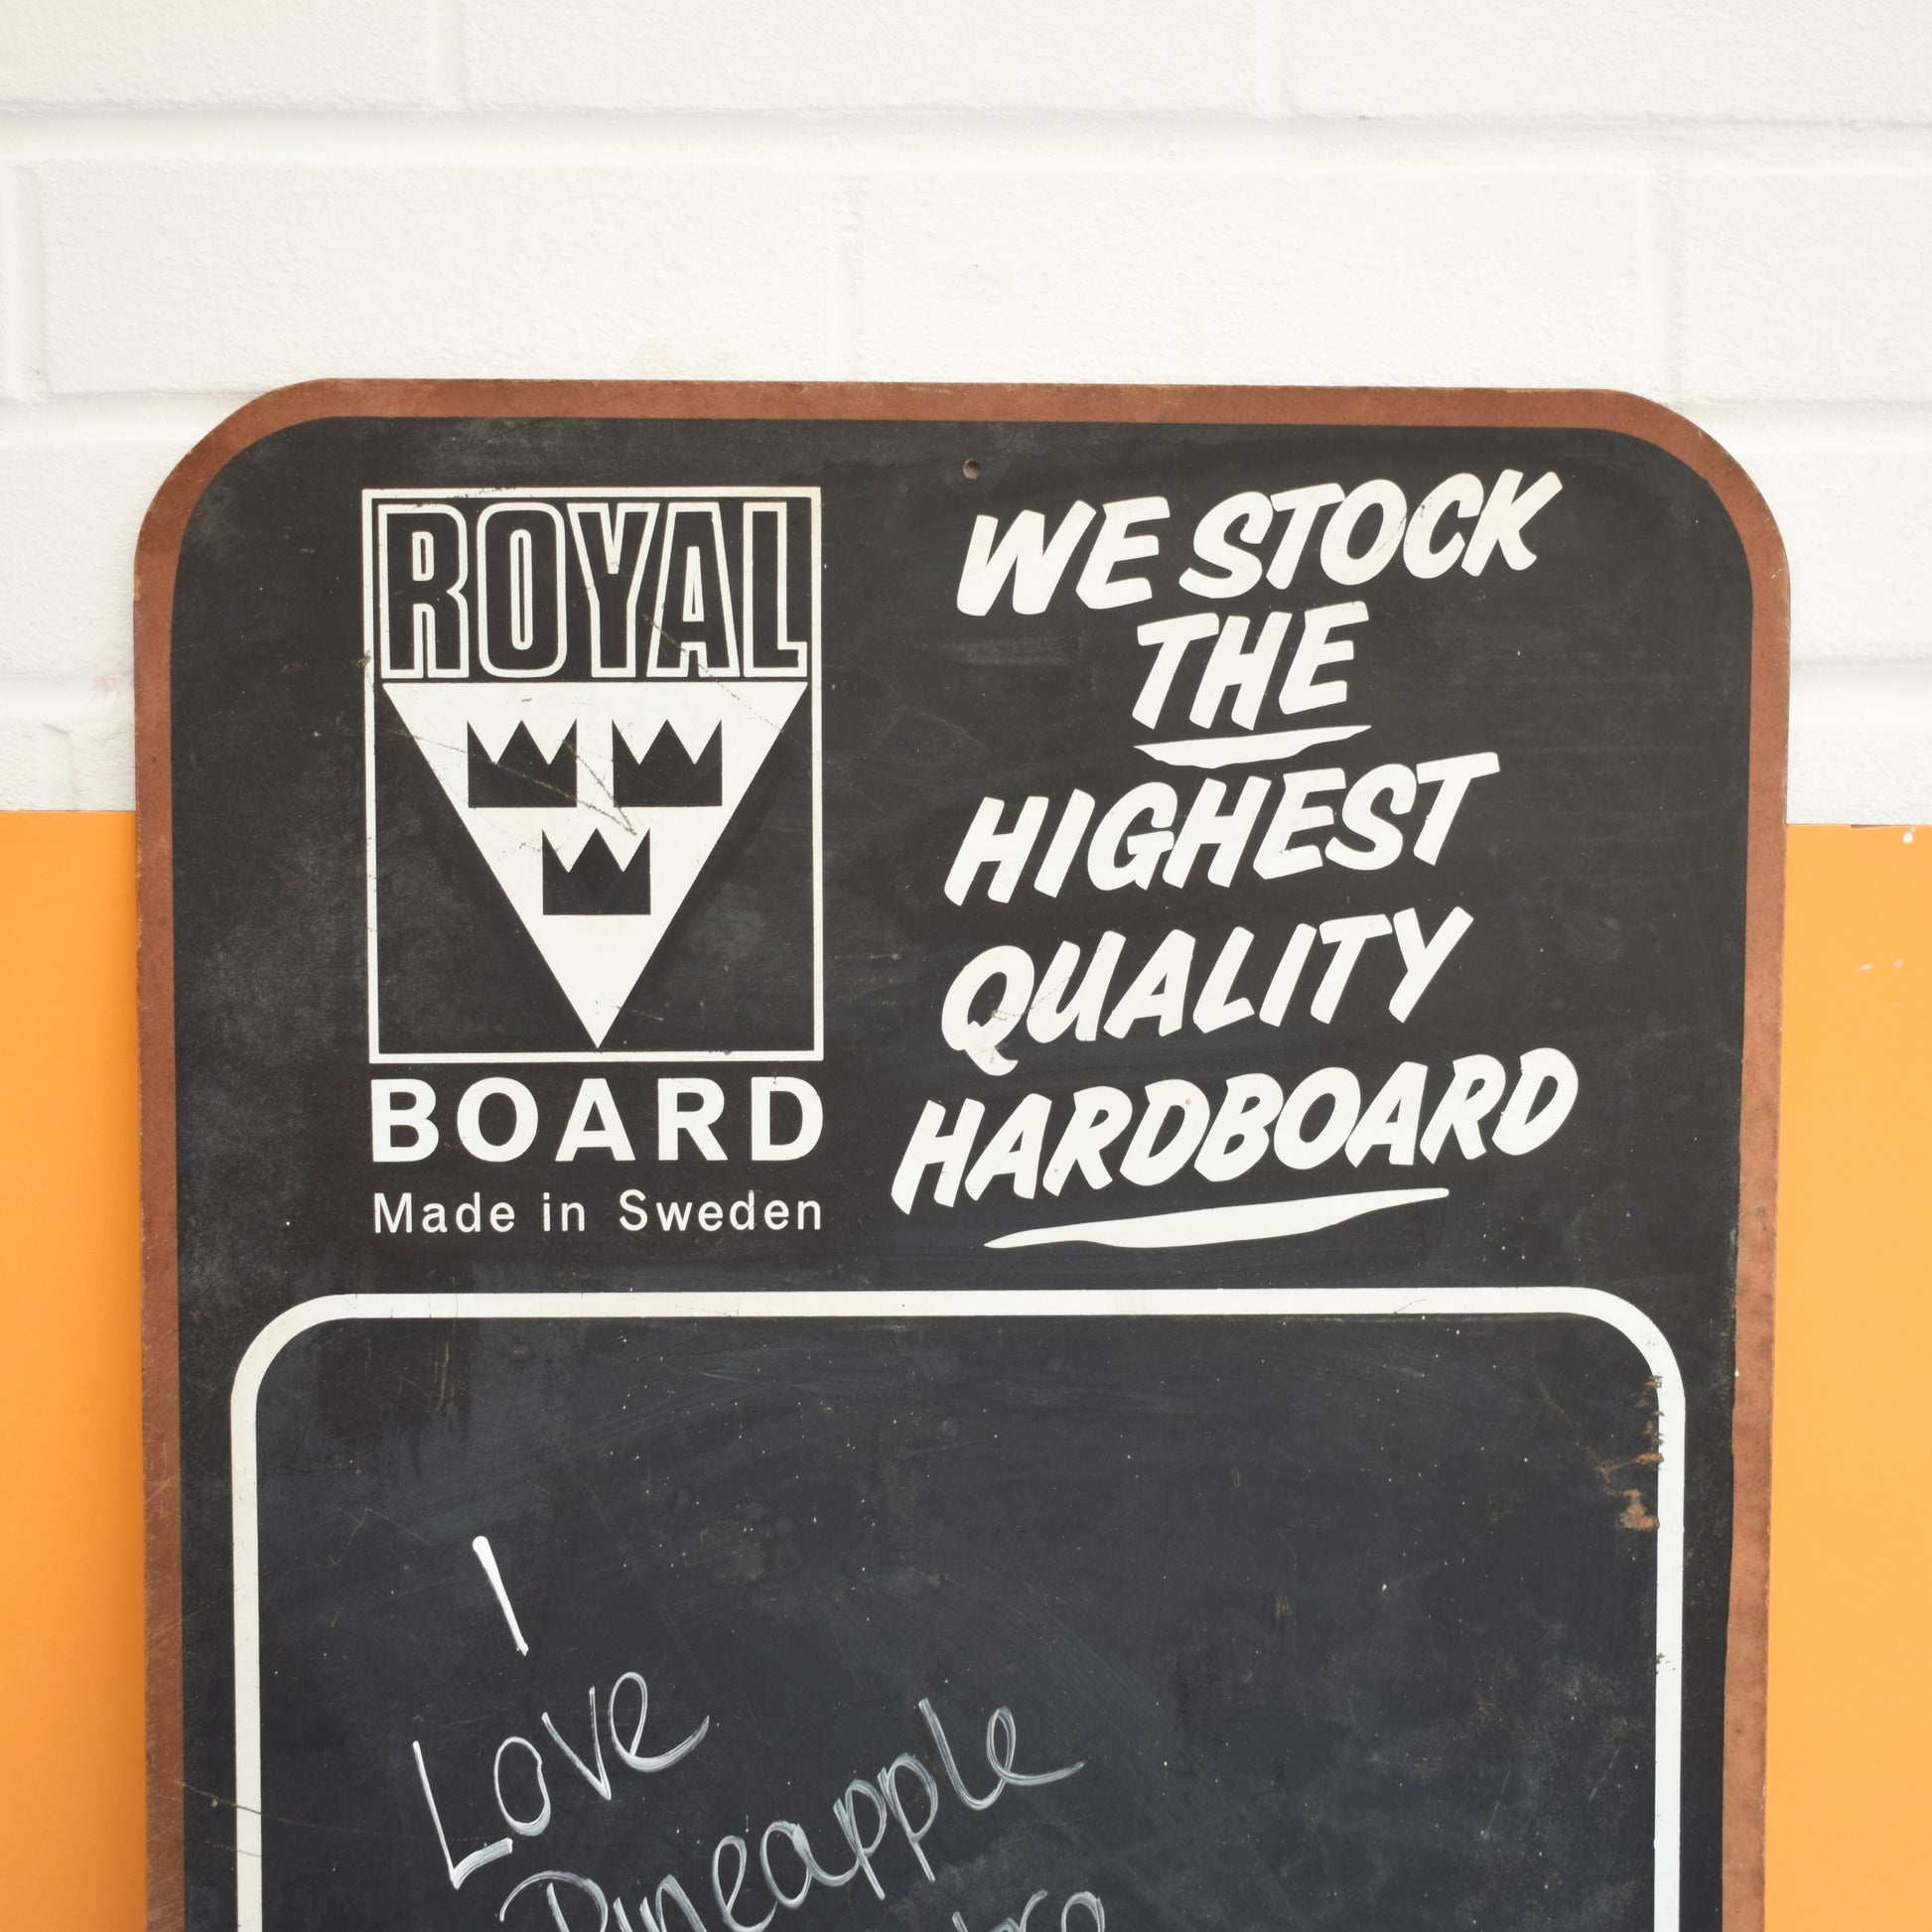 ROYAL
BOARD
Made in Sweden
WE STOCK
THE
HIGHEST
QUALITY
HARDBOARD
I
Love
Pineapple